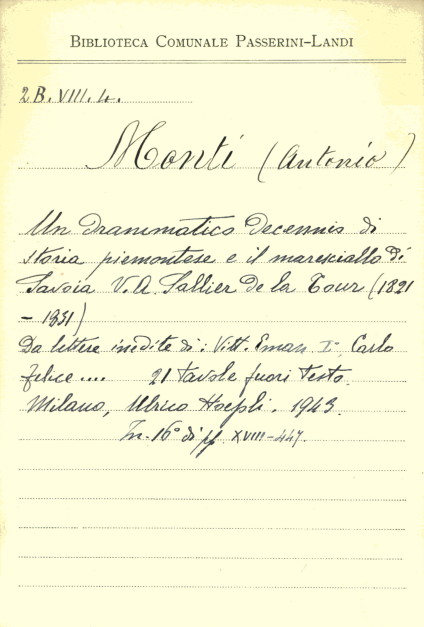 BIBLIOTECA COMUNALE PASSERINI-LANDI
2B.VIII.4.
Monti (Antonio)
Un drammatico decennio di
storia piemontese e il maresciallo di
Savoia V. A. Sallier de la Tour (1821
- 1831)
Da lettere inedite di: Vitt. Eman. I°, Carlo
Felice.... 21 tavole fuori testo.
Milano, Ulrico Hoepli. 1943.
In-16° di pp. XVIII-447.